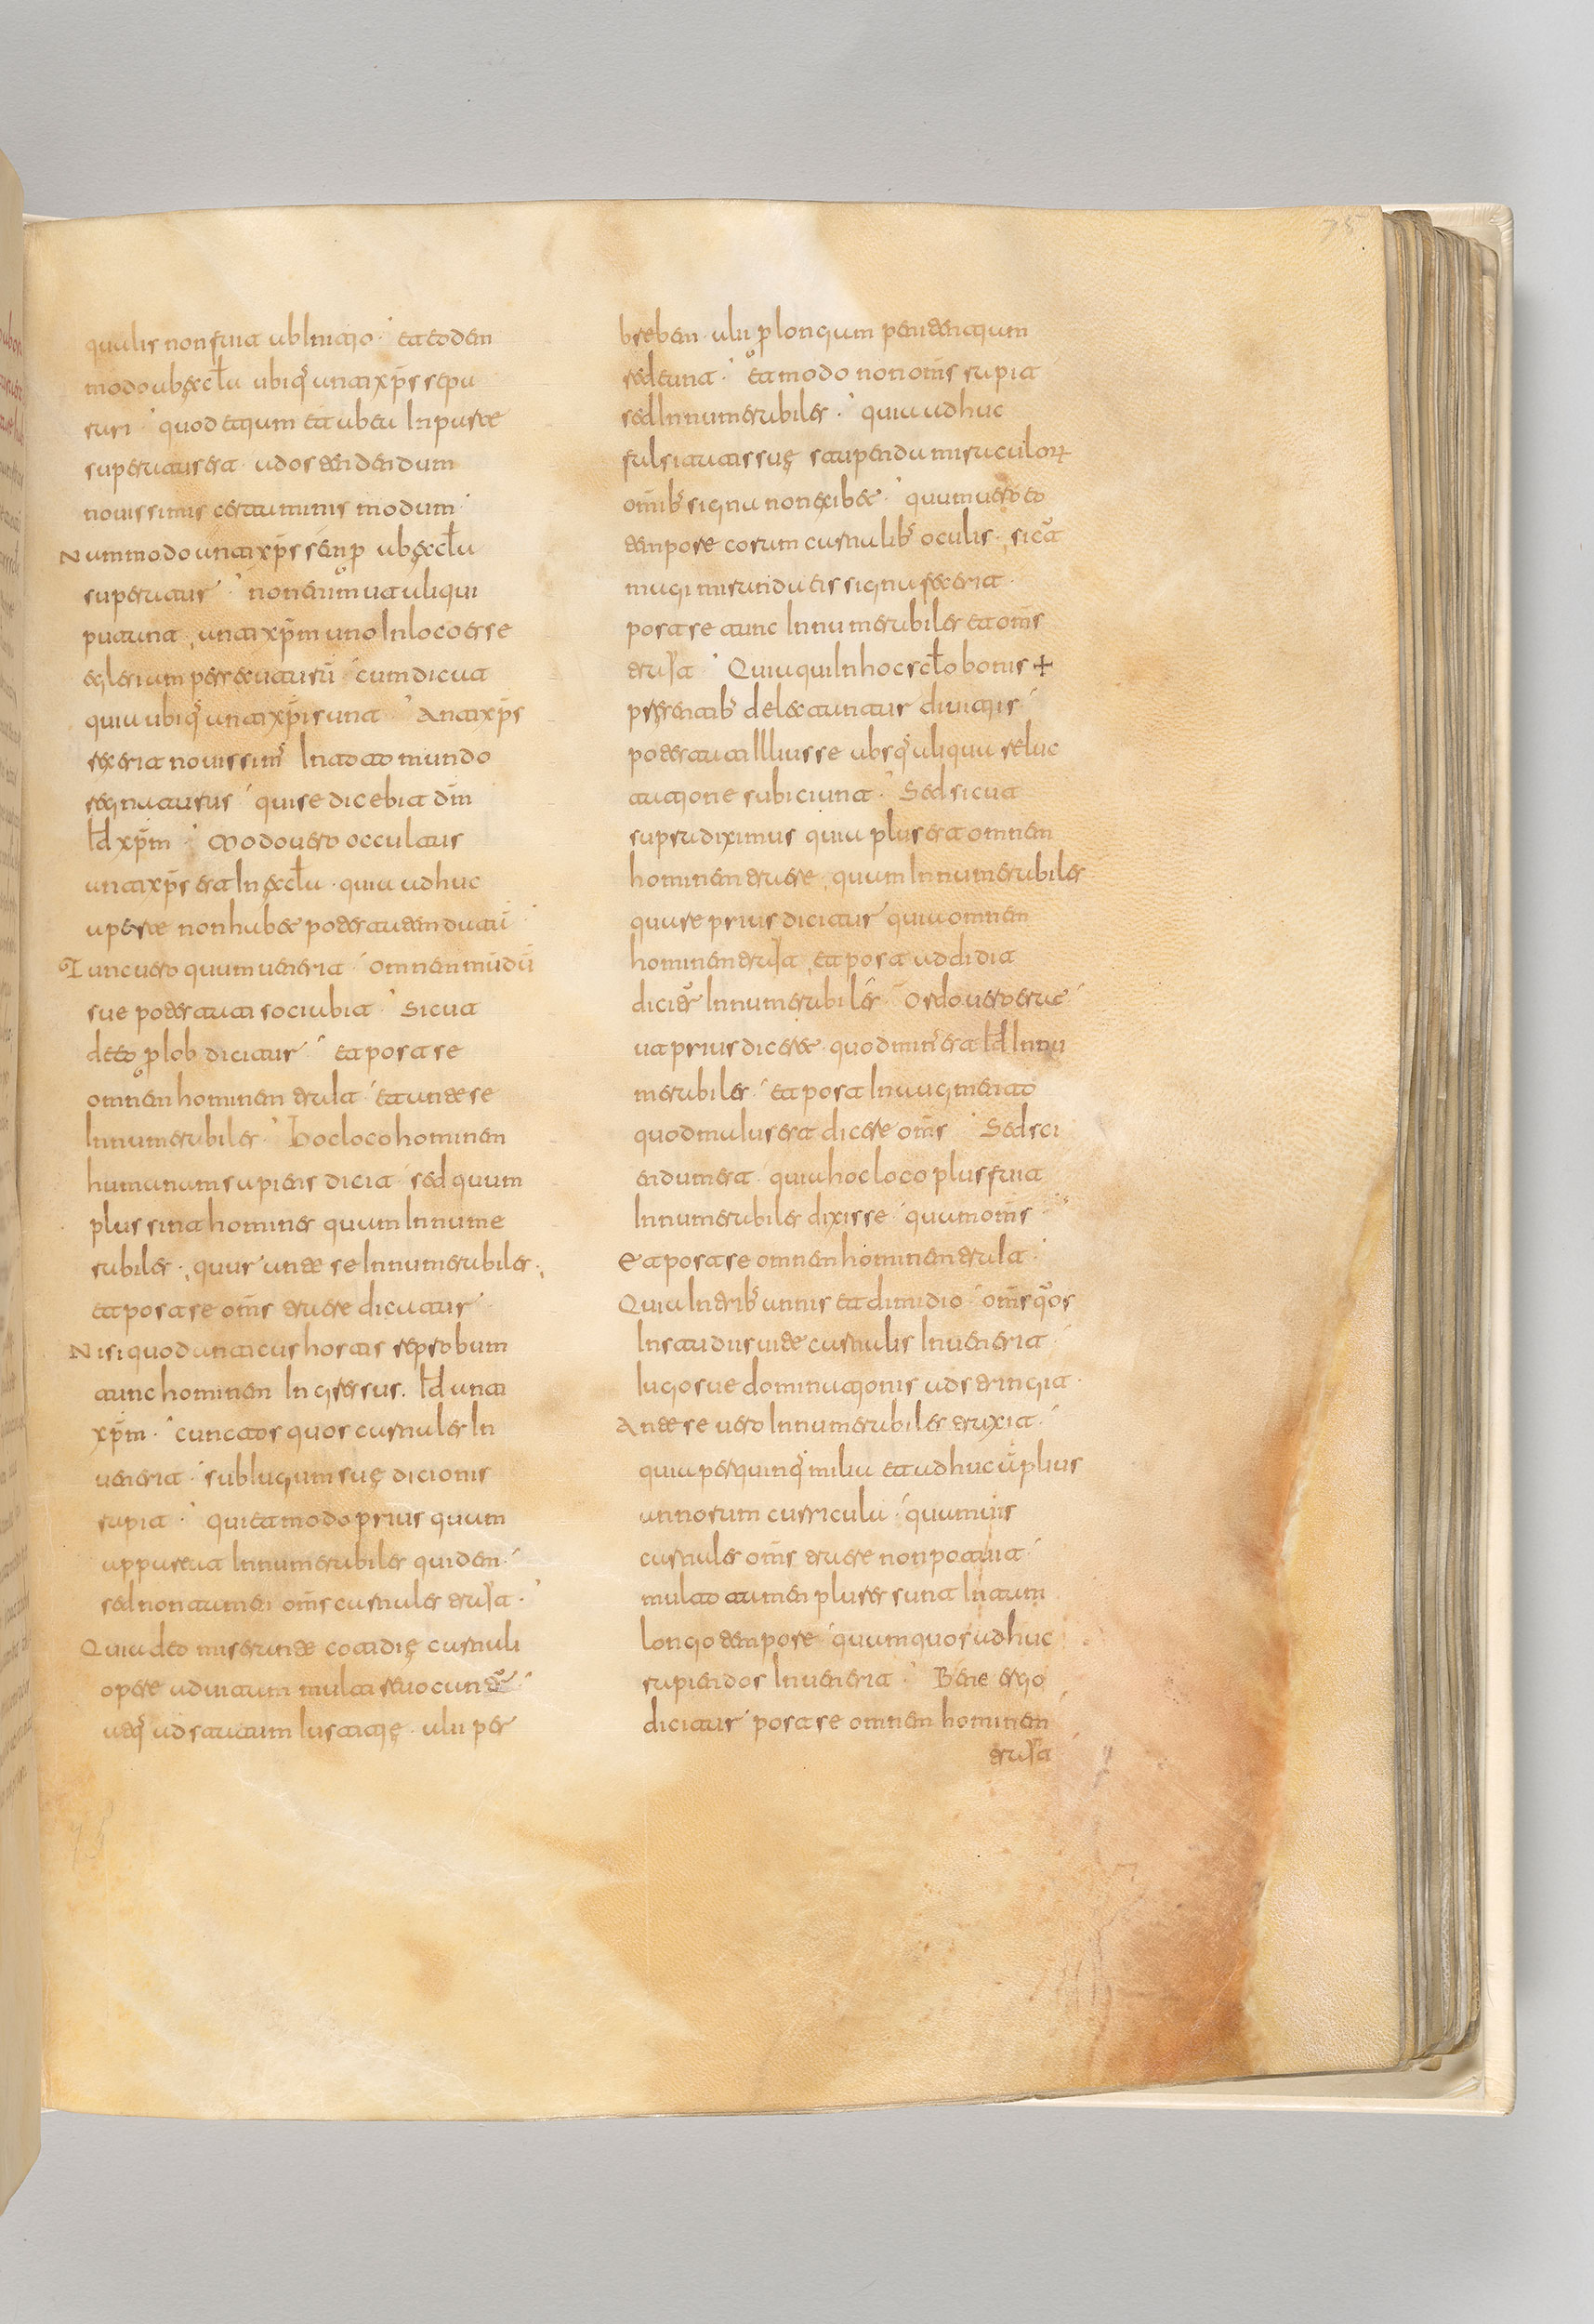 qualis non fuit ab initio · et eodem
modo ab ęccła ubiqȝ antixp̄s sepa
rari · quod etium et ab ea In parte
superatus est · ad ostendendum
nouissimis certaminis modum
Nam modo antixp̄s semp̱ ab ęccła
superatur · non enim ut aliqui
putant, antixp̄m uno In loco esse
ęglesiam persecuturū cum dicat
quia ubiqȝ antixp̄i sunt · Antixp̄s
rex erit nouissimȝ In toto mundo
regnaturus qui se dicebit dm̄
Id xp̄m · Modo uero occultus
antixp̄s est In ęccła · quia adhuc
aperte non habet potestatem datā
Tunc uero quum uenerit omnem mūdū
sue potestati sociabit · Sicut
de eo p̱ Iob dicitur · et post se
omnem hominem trait et ante se
Innumerabiles · Hoc loco hominem
humanum sapiens dicit sed quum
plus sint homines quum Innume
rabiles · quur ante se Innumerabiles
et post se om̄s traere dicatur
Nisi quod anticus hostis reprobum
tunc hominem Ingressus. Id anti
xp̄m · cunctos quos carnales In
uenerit · sub Iugum suę dicionis
rapit · qui et modo prius quum
appareat Innumerabiles quidem
sed non tamen om̄s carnales trait ·
Quia deo miserante cotidię carnali
opere ad uitam multi reuocant
atqȝ ad statum Iustitię · alii per
breben · alii p̱ longum penitentium
redeunt · et modo non om̄s rapit
sed Innumerabiles · quia adhuc
falsitatis suę stupenda miraculoꝝ
om̄ibȝ signa non exibet · quum uero eo
tempore eorum carnalibȝ oculis, sicut
magi miranda eis signa fecerit
post se tunc Innumerabiles et om̄s
trait · Quia qui In hoc scło bonis +
presentibȝ delectantur diuitiis
potestati Illius se absqȝ aliqua reluc
tatione subiciunt · Sed sicut
supra diximus quia plus est omnem
hominem traere · quum Innumerabiles
quare prius dicitur quia omnem
hominem trait, et post addidit
dicier Innumerabiles · Ordo uero erat
ut prius diceret · quod minȝ est Id Innu
merabiles et post In augmento
quod maius est dicere om̄s · Sed sci
endum est · quia hoc loco plus fuit
Innumerabiles dixisse quum om̄s
Et post se omnem hominem trait
Quia In tribȝ annis et dimidio om̄s quos
In studiis uite carnalis Inuenerit
Iugo sue dominationis adstringit ·
Ante se uero Innumerabiles traxit
quia per quinqȝ milia et adhuc ā plius
annorum curricula quumuis
carnales om̄s traere non potuit
multo tamen plures sunt In tam
longo tempore quum quos adhuc
rapiendos Inuenerit · Bene ergo
dicitur post se omnem hominem
trait
75